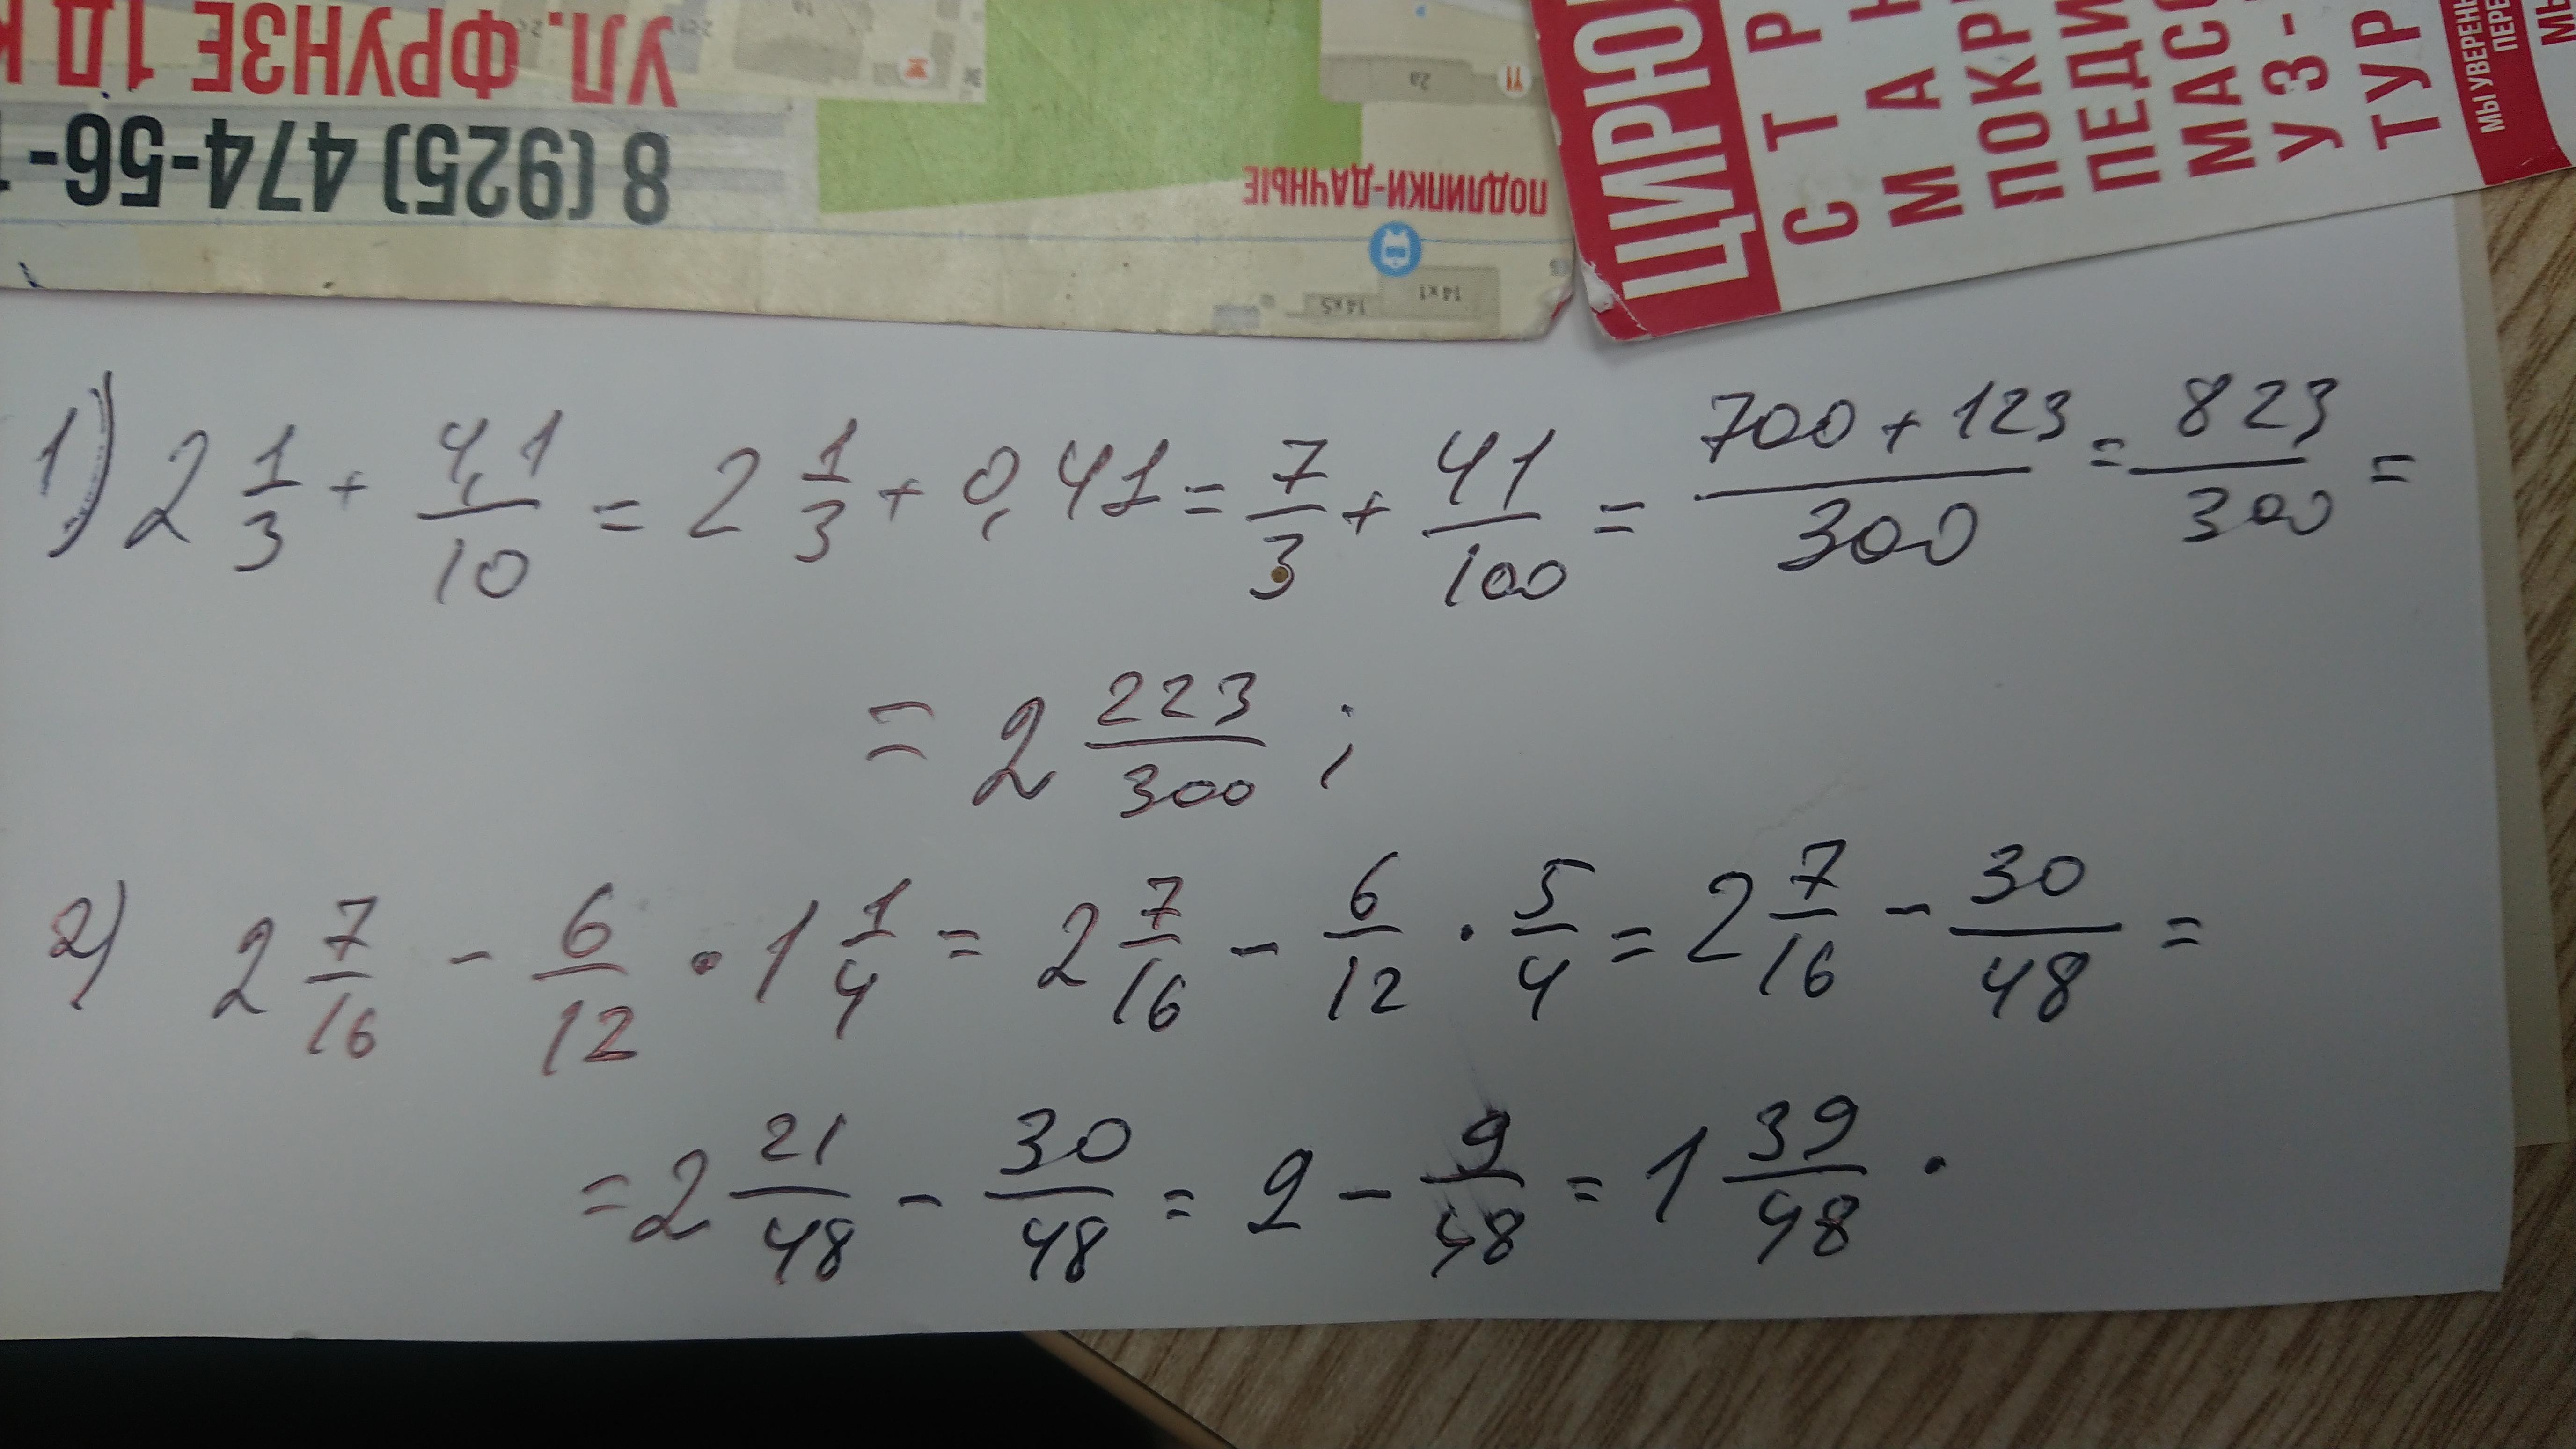 УЛ. ФРУНЗЕ 1Д К
8 (925) 474-56-
ПОДЛИПКИ-ДАЧНЫЕ
2а
14к1
14к5
ЦИРЮ
СТР
МАН
ПОКР
ПЕДИ
МАС
УЗ-
ТУР
МЫ УВЕРЕН
ПЕРЕ
1) 2 1/3 + 4,1/10 = 2 1/3 + 0,41 = 7/3 + 41/100 = (700 + 123)/300 = 823/300 =
= 2 223/300 ;
2) 2 7/16 - 6/12 · 1 1/4 = 2 7/16 - 6/12 · 5/4 = 2 7/16 - 30/48 =
= 2 21/48 - 30/48 = 2 - 9/48 = 1 39/48 .